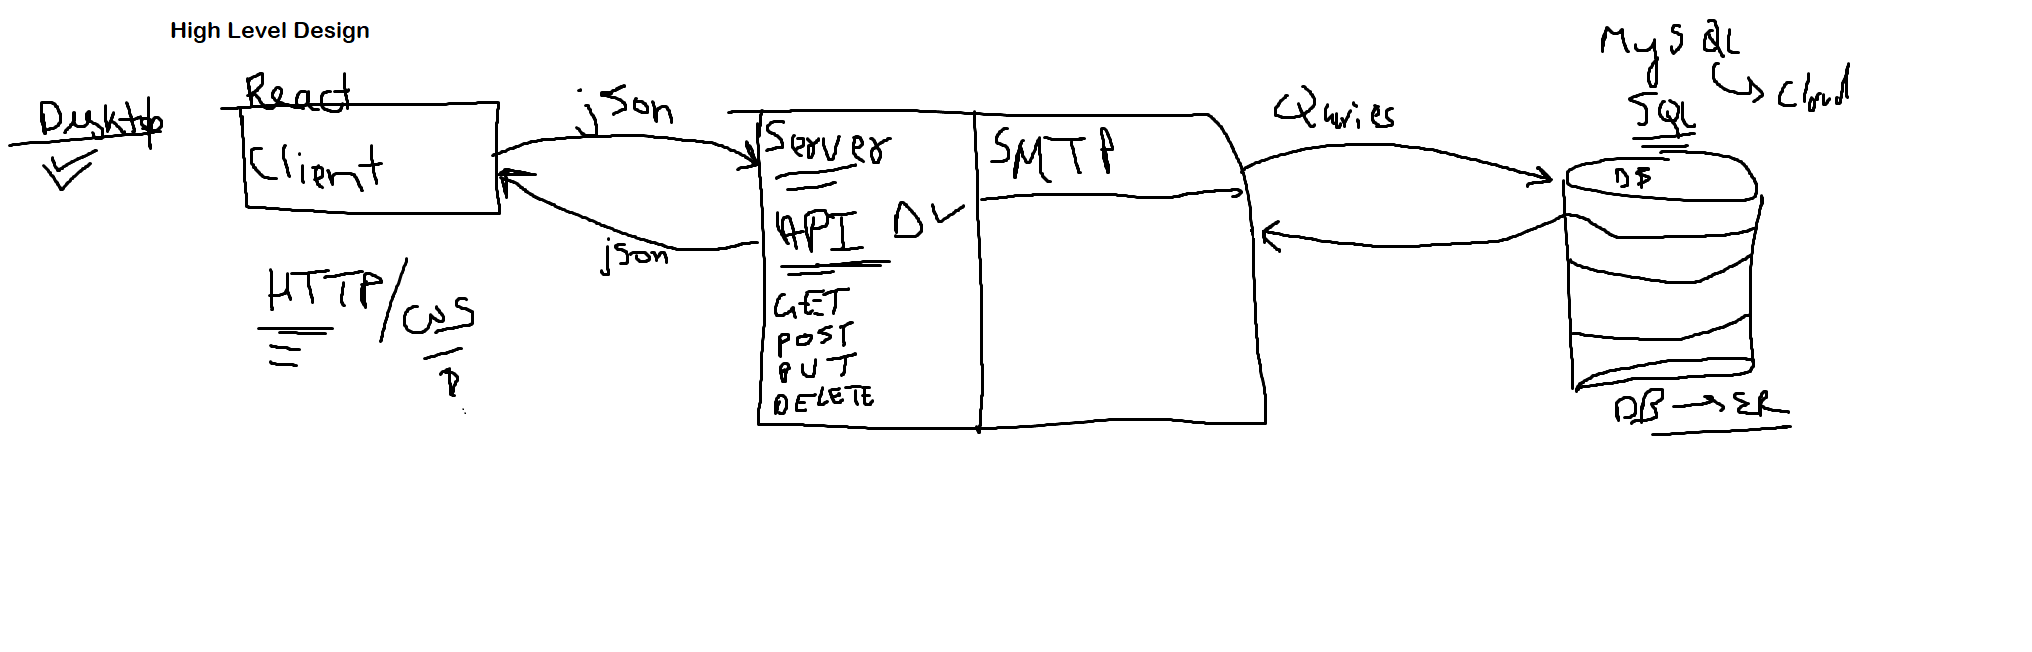 High Level Design
Desktop
React
Client
HTTP/
json
json
Server
API
GET
POST
PUT
DELETE
SMTP
Quries
MySQL
Cloud
SQL
DB
DB → ER